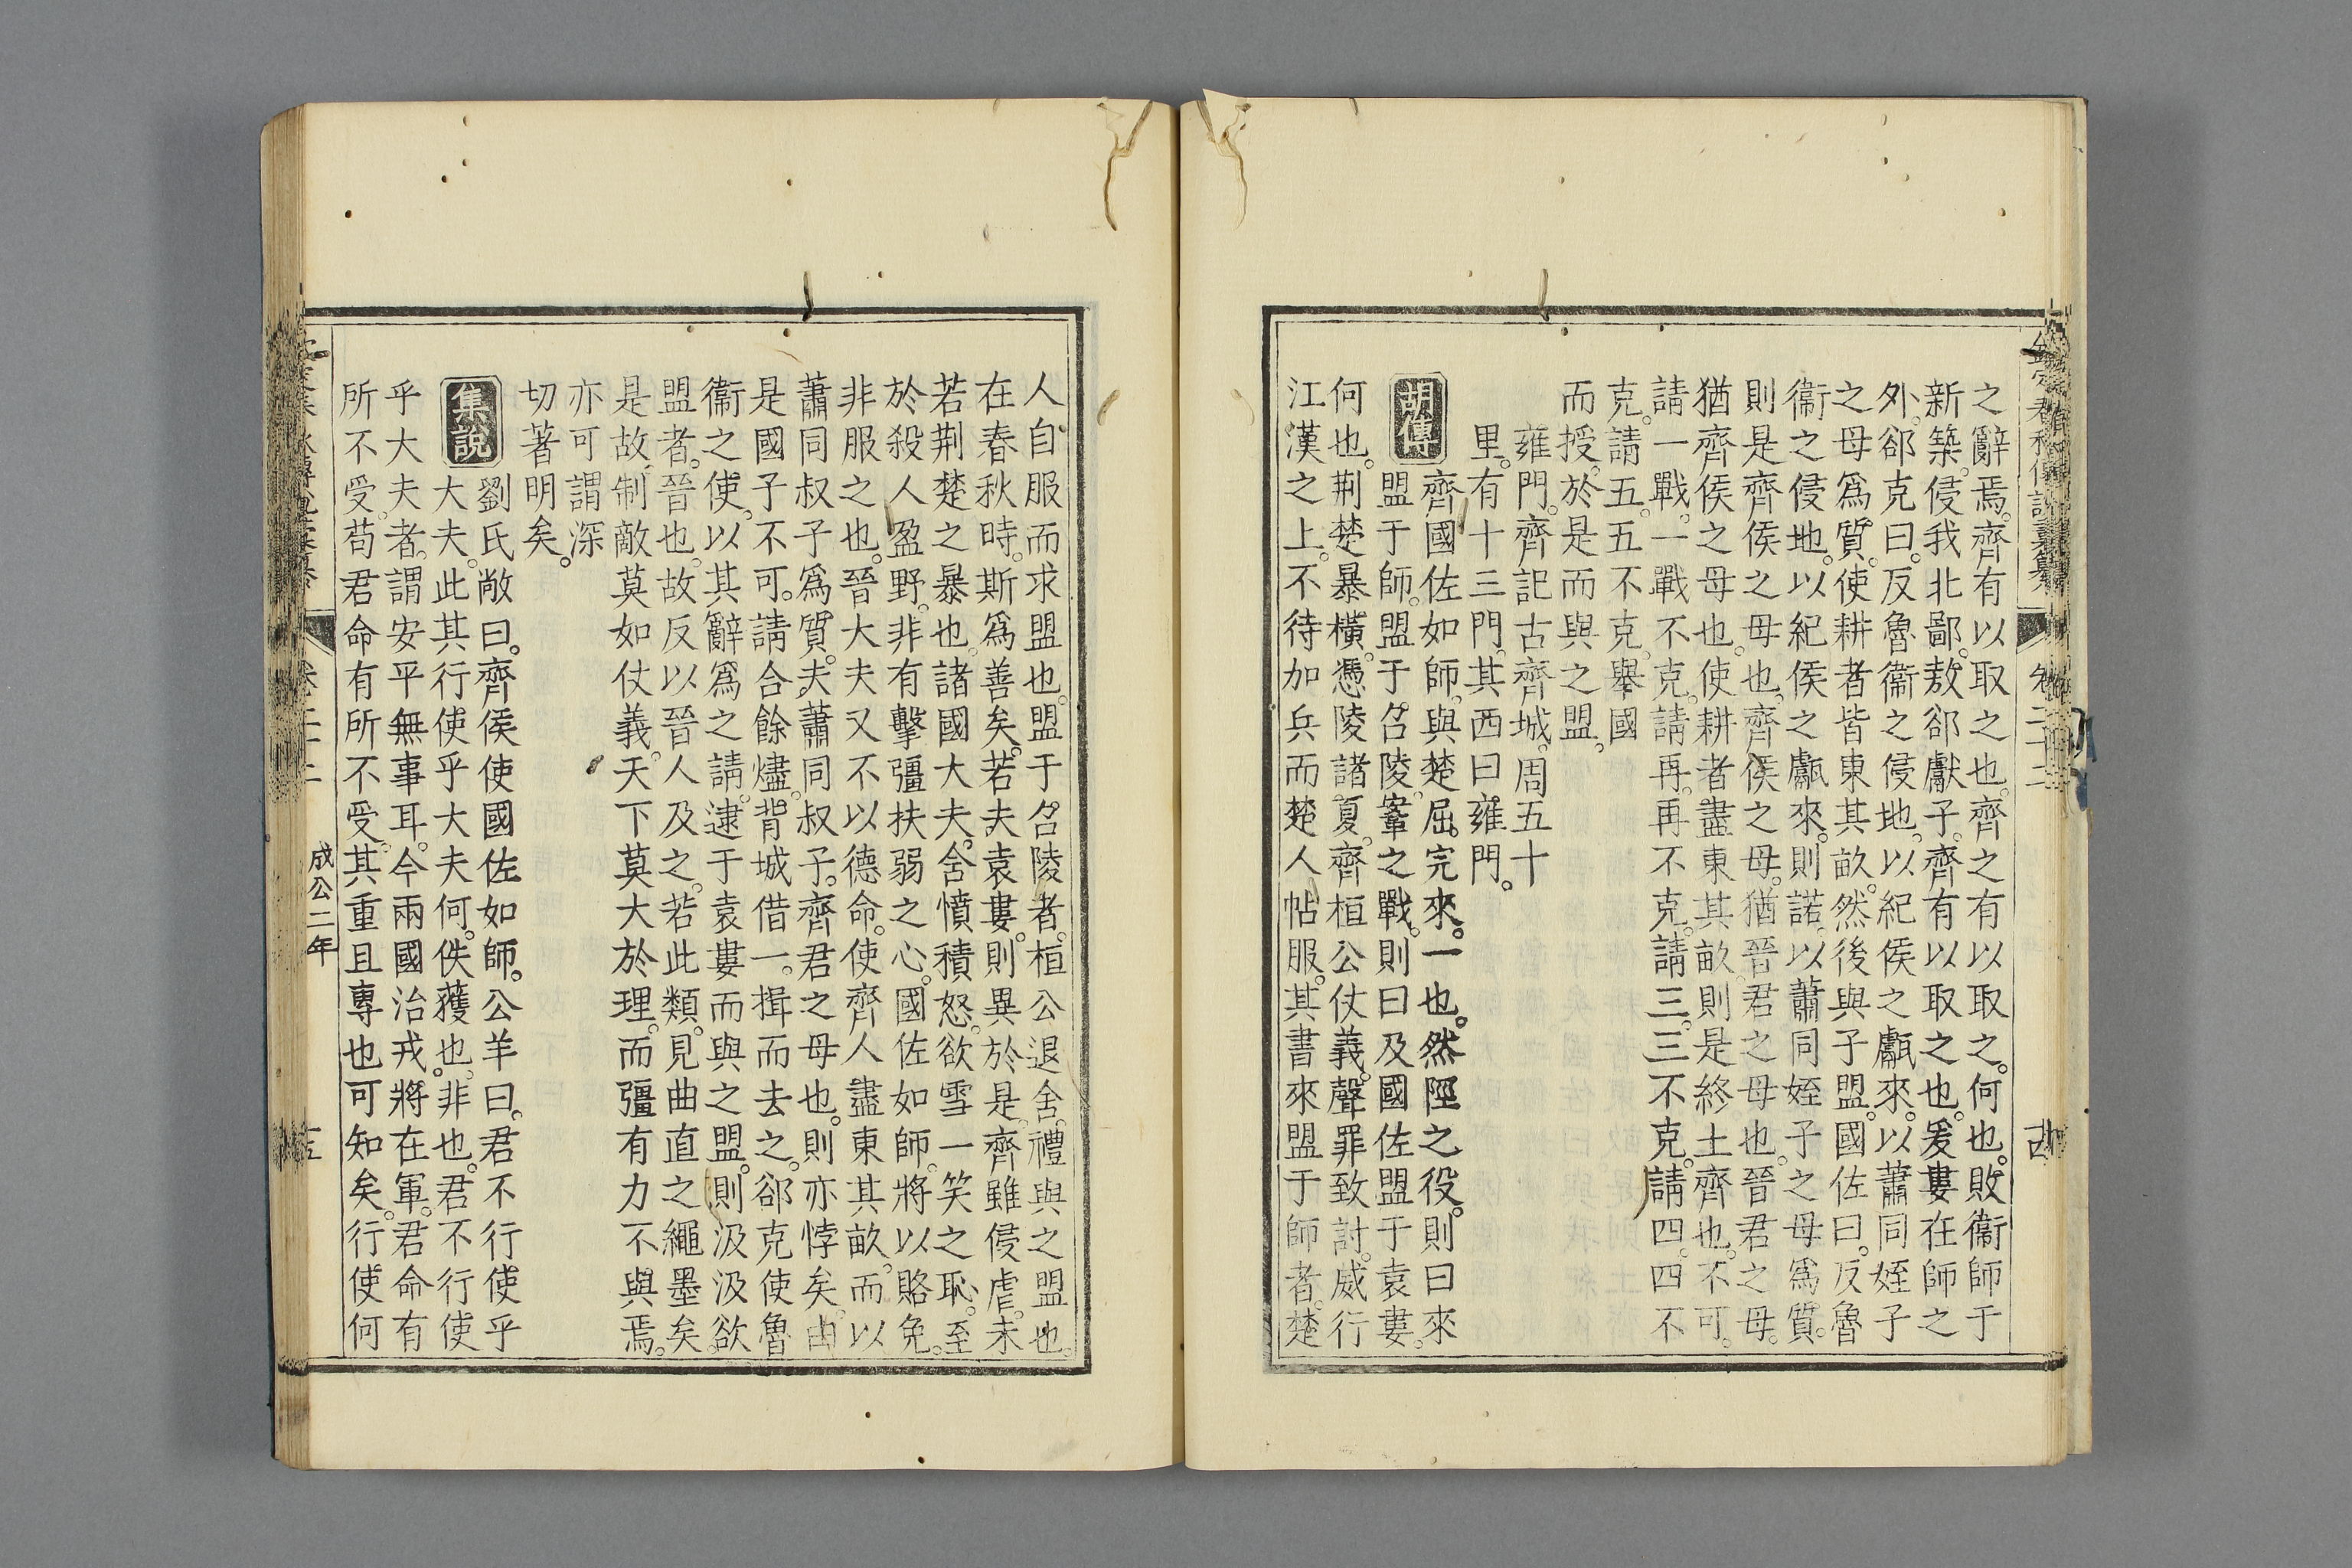 之辭焉。齊有以取之也。齊之有以取之。何也。敗衞師于
新築。侵我北鄙。敖郤獻子。齊有以取之也。爰婁在師之
外。郤克曰。反魯衞之侵地。以紀侯之甗來。以蕭同姪子
之母爲質。使耕者皆東其畝。然後與子盟。國佐曰。反魯
衞之侵地。以紀侯之甗來。則諾。以蕭同姪子之母爲質。
則是齊侯之母也。齊侯之母。猶晉君之母也。晉君之母。
猶齊侯之母也。使耕者盡東其畝。則是終土齊也。不可。
請一戰。一戰不克。請再。再不克。請三。三不克。請四。四不
克。請五。五不克。舉國
而授。於是而與之盟。
雍門。齊記古齊城。周五十
里。有十三門。其西曰雍門。
胡傳
齊國佐如師。與楚屈完來。一也。然陘之役。則曰來
盟于師。盟于召陵。鞌之戰。則曰及國佐盟于袁婁。
何也。荆楚暴橫。憑陵諸夏。齊桓公仗義。聲罪致討。威行
江漢之上。不待加兵而楚人帖服。其書來盟于師者。楚
人自服而求盟也。盟于召陵者。桓公退舍。禮與之盟也。
在春秋時。斯爲善矣。若夫袁婁。則異於是。齊雖侵虐。未
若荆楚之暴也。諸國大夫。含憤積怒。欲雪一笑之恥。至
於殺人盈野。非有擊彊扶弱之心。國佐如師。將以賂免。
非服之也。晉大夫又不以德命。使齊人盡東其畝。而以
蕭同叔子爲質。夫蕭同叔子。齊君之母也。則亦悖矣。由
是國子不可。請合餘燼。背城借一。揖而去之。郤克使魯
衞之使。以其辭爲之請。逮于袁婁而與之盟。則汲汲欲
盟者。晉也。故反以晉人及之。若此類。見曲直之繩墨矣。
是故制敵莫如仗義。天下莫大於理。而彊有力不與焉。
亦可謂深
切著明矣。
集說
劉氏敞曰。齊侯使國佐如師。公羊曰。君不行使乎
大夫。此其行使乎大夫何。佚獲也。非也。君不行使
乎大夫者。謂安平無事耳。今兩國治戎。將在軍。君命有
所不受。苟君命有所不受。其重且專也可知矣。行使何
成公二年